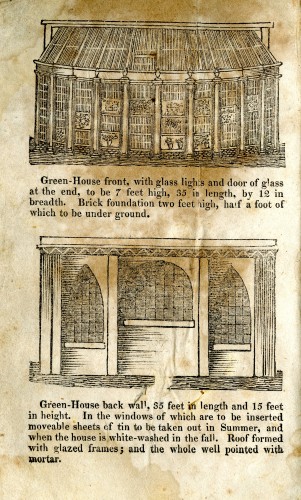 Green-House front, with glass lights and door of glass
at the end, to be 7 feet high, 35 is length, by 12 in
breadth. Brick foundation two feet high, half a foot of
which to be under ground.
Green-House back wall, 35 feet in length and 15 feet
in height. In the windows of which are to be inserted
moveable sheets of tin to be taken out in Summer, and
when the house is white-washed in the fall. Roof formed
with glazed frames; and the whole well pointed with
mortar.